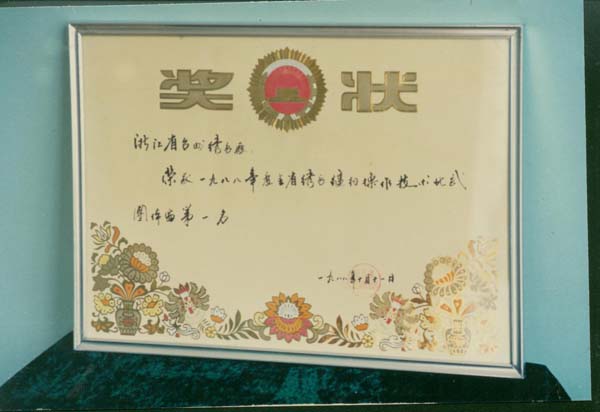 奖状
浙江省台州绣衣厂
荣获一九八八年度全省绣衣缝纫操作技术比武
团体当第一名
一九八八年十月十一日